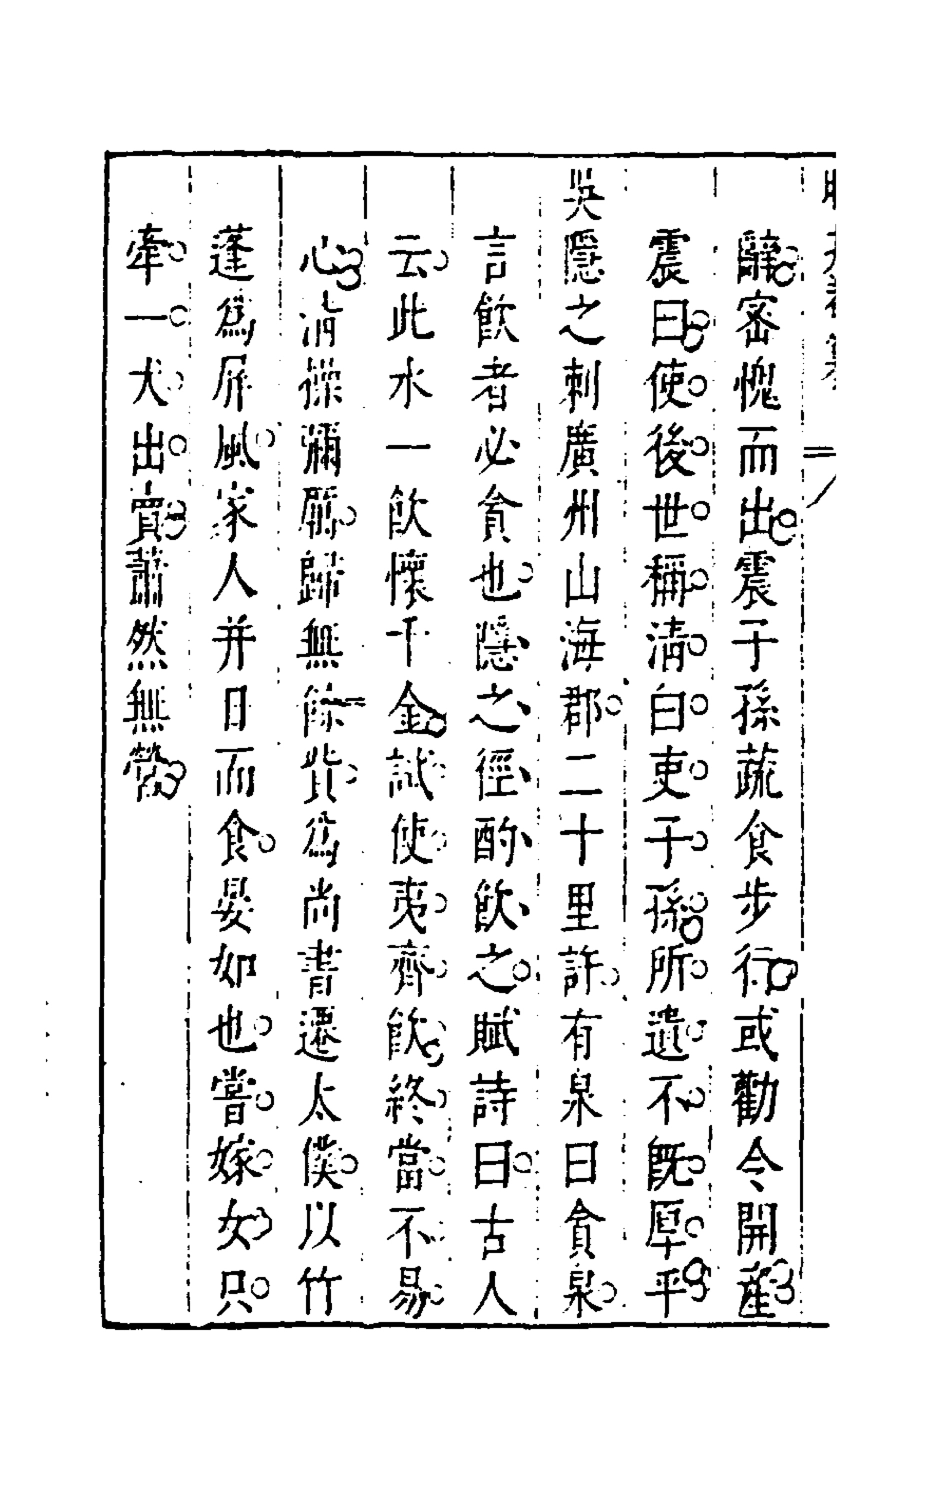 辭密愧而出震子孫蔬食步行或勸令開產
震曰使後世稱清白吏子孫所遺不旣厚乎
吳隱之刺廣州山海郡二十里許有泉曰貪泉
言飮者必貪也隱之徑酌飮之賦詩曰古人
云此水一飮懷千金試使夷齊飮終當不易
心淸操彌厲歸無餘貲爲尚書遷太僕以竹
蓬爲屛風家人并日而食晏如也嘗嫁女只
牽一犬出賣蕭然無營